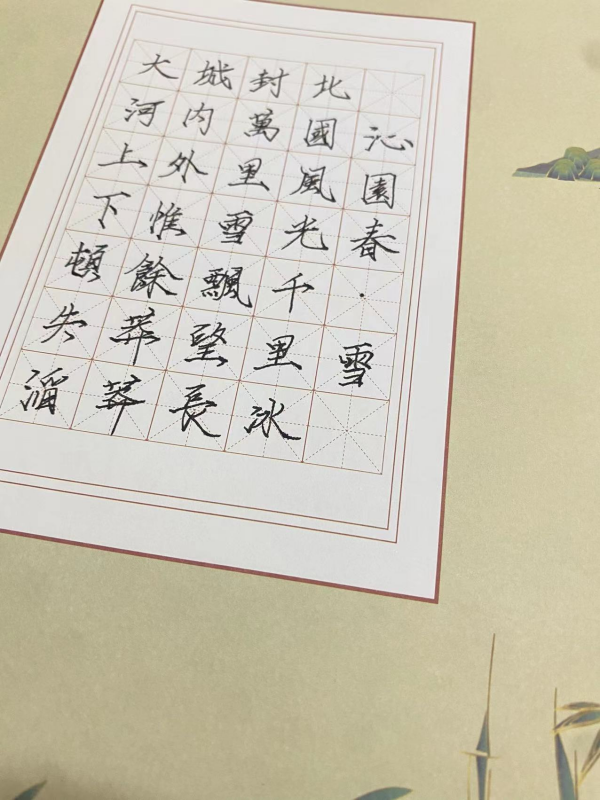 沁園春·雪
北國風光千里冰
封萬里雪飄望長
城内外惟餘莽莽
大河上下頓失滔